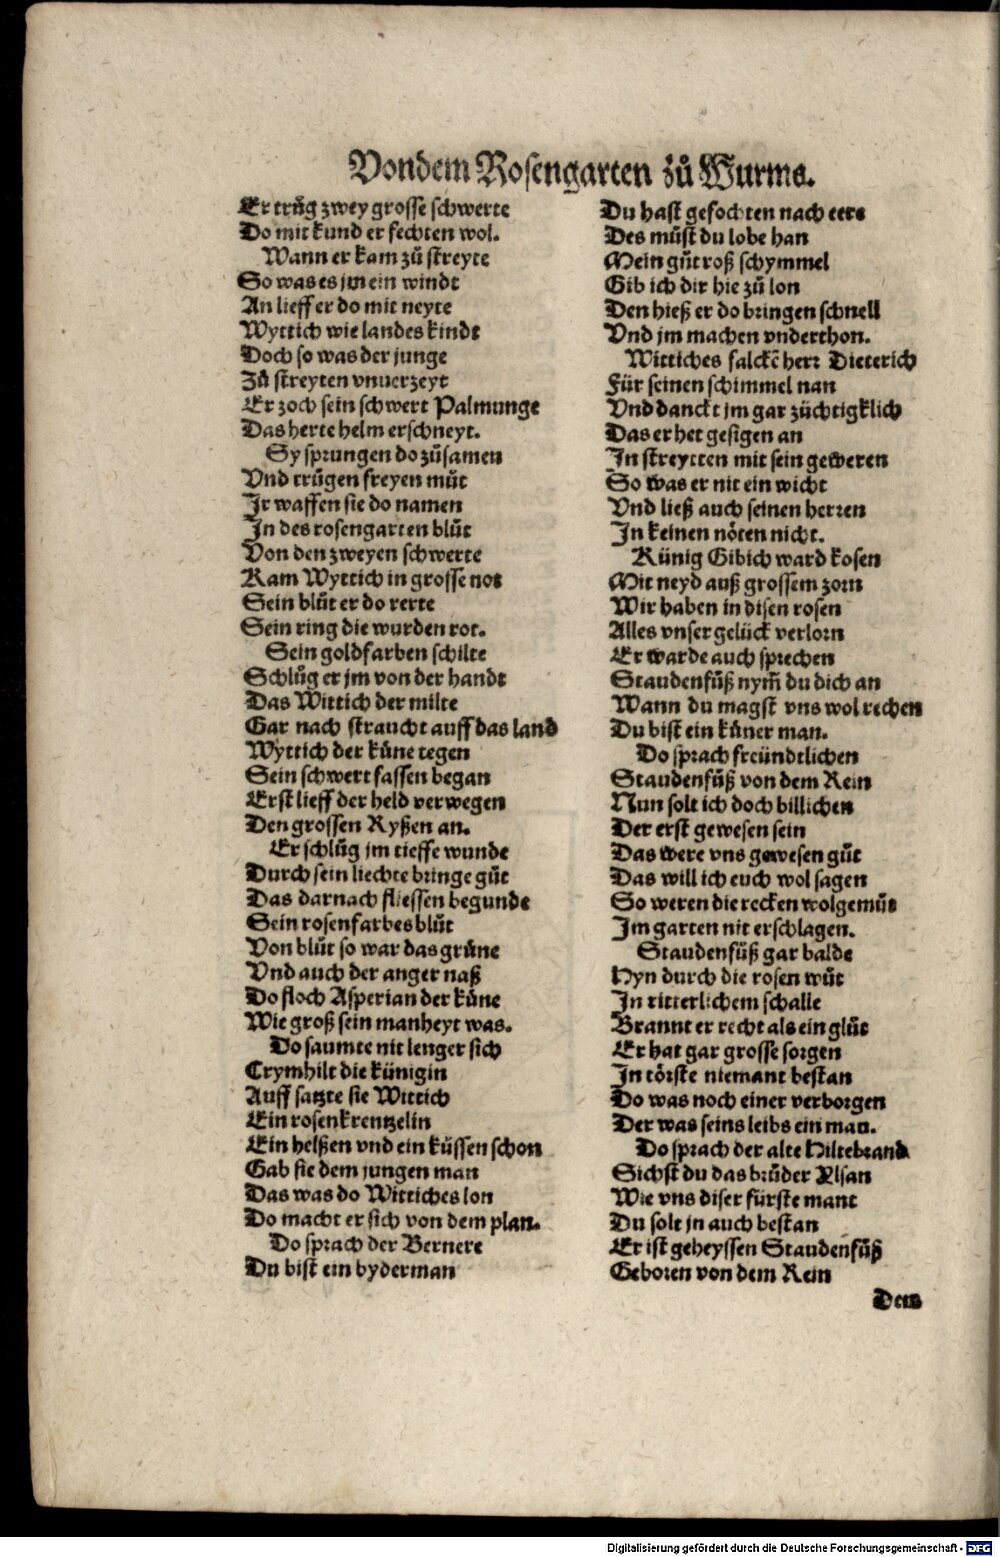 Vondem Rosengarten zů Wurms.
Er trůg zwey grosse schwerte
Do mit kund er fechten wol.
Wann er kam zů streyte
So was es jm ein windt
An lieff er do mit neyte
Wyttich wie landes kindt
Doch so was der junge
Zů streyten vnuerzeyt
Er zoch sein schwert Palmunge
Das herte helm erschneyt.
Sy sprungen do zůsamen
Vnd trůgen freyen můt
Jr waffen sie do namen
Jn des rosengarten blůt
Von den zweyen schwerte
Kam Wyttich in grosse not
Sein blůt er do rerte
Sein ring die wurden rot.
Sein goldfarben schilte
Schlůg er jm von der handt
Das Wittich der milte
Gar nach straucht auff das land
Wyttich der küne tegen
Sein schwert fassen began
Erst lieff der held verwegen
Den grossen Ryßen an.
Er schlůg jm tieffe wunde
Durch sein liechte bringe gůt
Das darnach fliessen begunde
Sein rosenfarbes blůt
Von blůt so war das grüne
Vnd auch der anger naß
Do floch Asperian der küne
Wie groß sein manheyt was.
Do saumte nit lenger sich
Crymhilt die künigin
Auff satzte sie Wittich
Ein rosenkrentzelin
Ein helßen vnd ein küssen schon
Gab sie dem jungen man
Das was do Wittiches lon
Do macht er sich von dem plan.
Do sprach der Bernere
Du bist ein byderman
Du hast gefochten nach eere
Des můst du lobe han
Mein gůt roß schymmel
Gib ich dir hie zů lon
Den hieß er do bringen schnell
Vnd jm machen vnderthon.
Wittiches falckē herr Dieterich
Für seinen schimmel nan
Vnd danckt jm gar züchtigklich
Das er het gesigen an
Jn streytten mit sein geweren
So was er nit ein wicht
Vnd ließ auch seinen herren
Jn keinen nöten nicht.
Künig Gibich ward kosen
Mit neyd auß grossem zorn
Wir haben in disen rosen
Alles vnser gelück verlorn
Er warde auch sprechen
Staudenfůß nym̃ du dich an
Wann du magst vns wol rechen
Du bist ein küner man.
Do sprach freündtlichen
Staudenfůß von dem Rein
Nun solt ich doch billichen
Der erst gewesen sein
Das were vns gewesen gůt
Das will ich euch wol sagen
So weren die recken wolgemůt
Jm garten nit erschlagen.
Staudenfůß gar balde
Hyn durch die rosen wůt
Jn ritterlichem schalle
Brannt er recht als ein glůt
Er hat gar grosse sorgen
Jn törste niemant bestan
Do was noch einer verborgen
Der was seins leibs ein man.
Do sprach der alte Hiltebrand
Sichst du das brůder Ylsan
Wie vns diser fürste mant
Du solt jn auch bestan
Er ist geheyssen Staudenfůß
Geboren von dem Rein
Dem
Digitalisierung gefördert durch die Deutsche Forschungsgemeinschaft - DFG